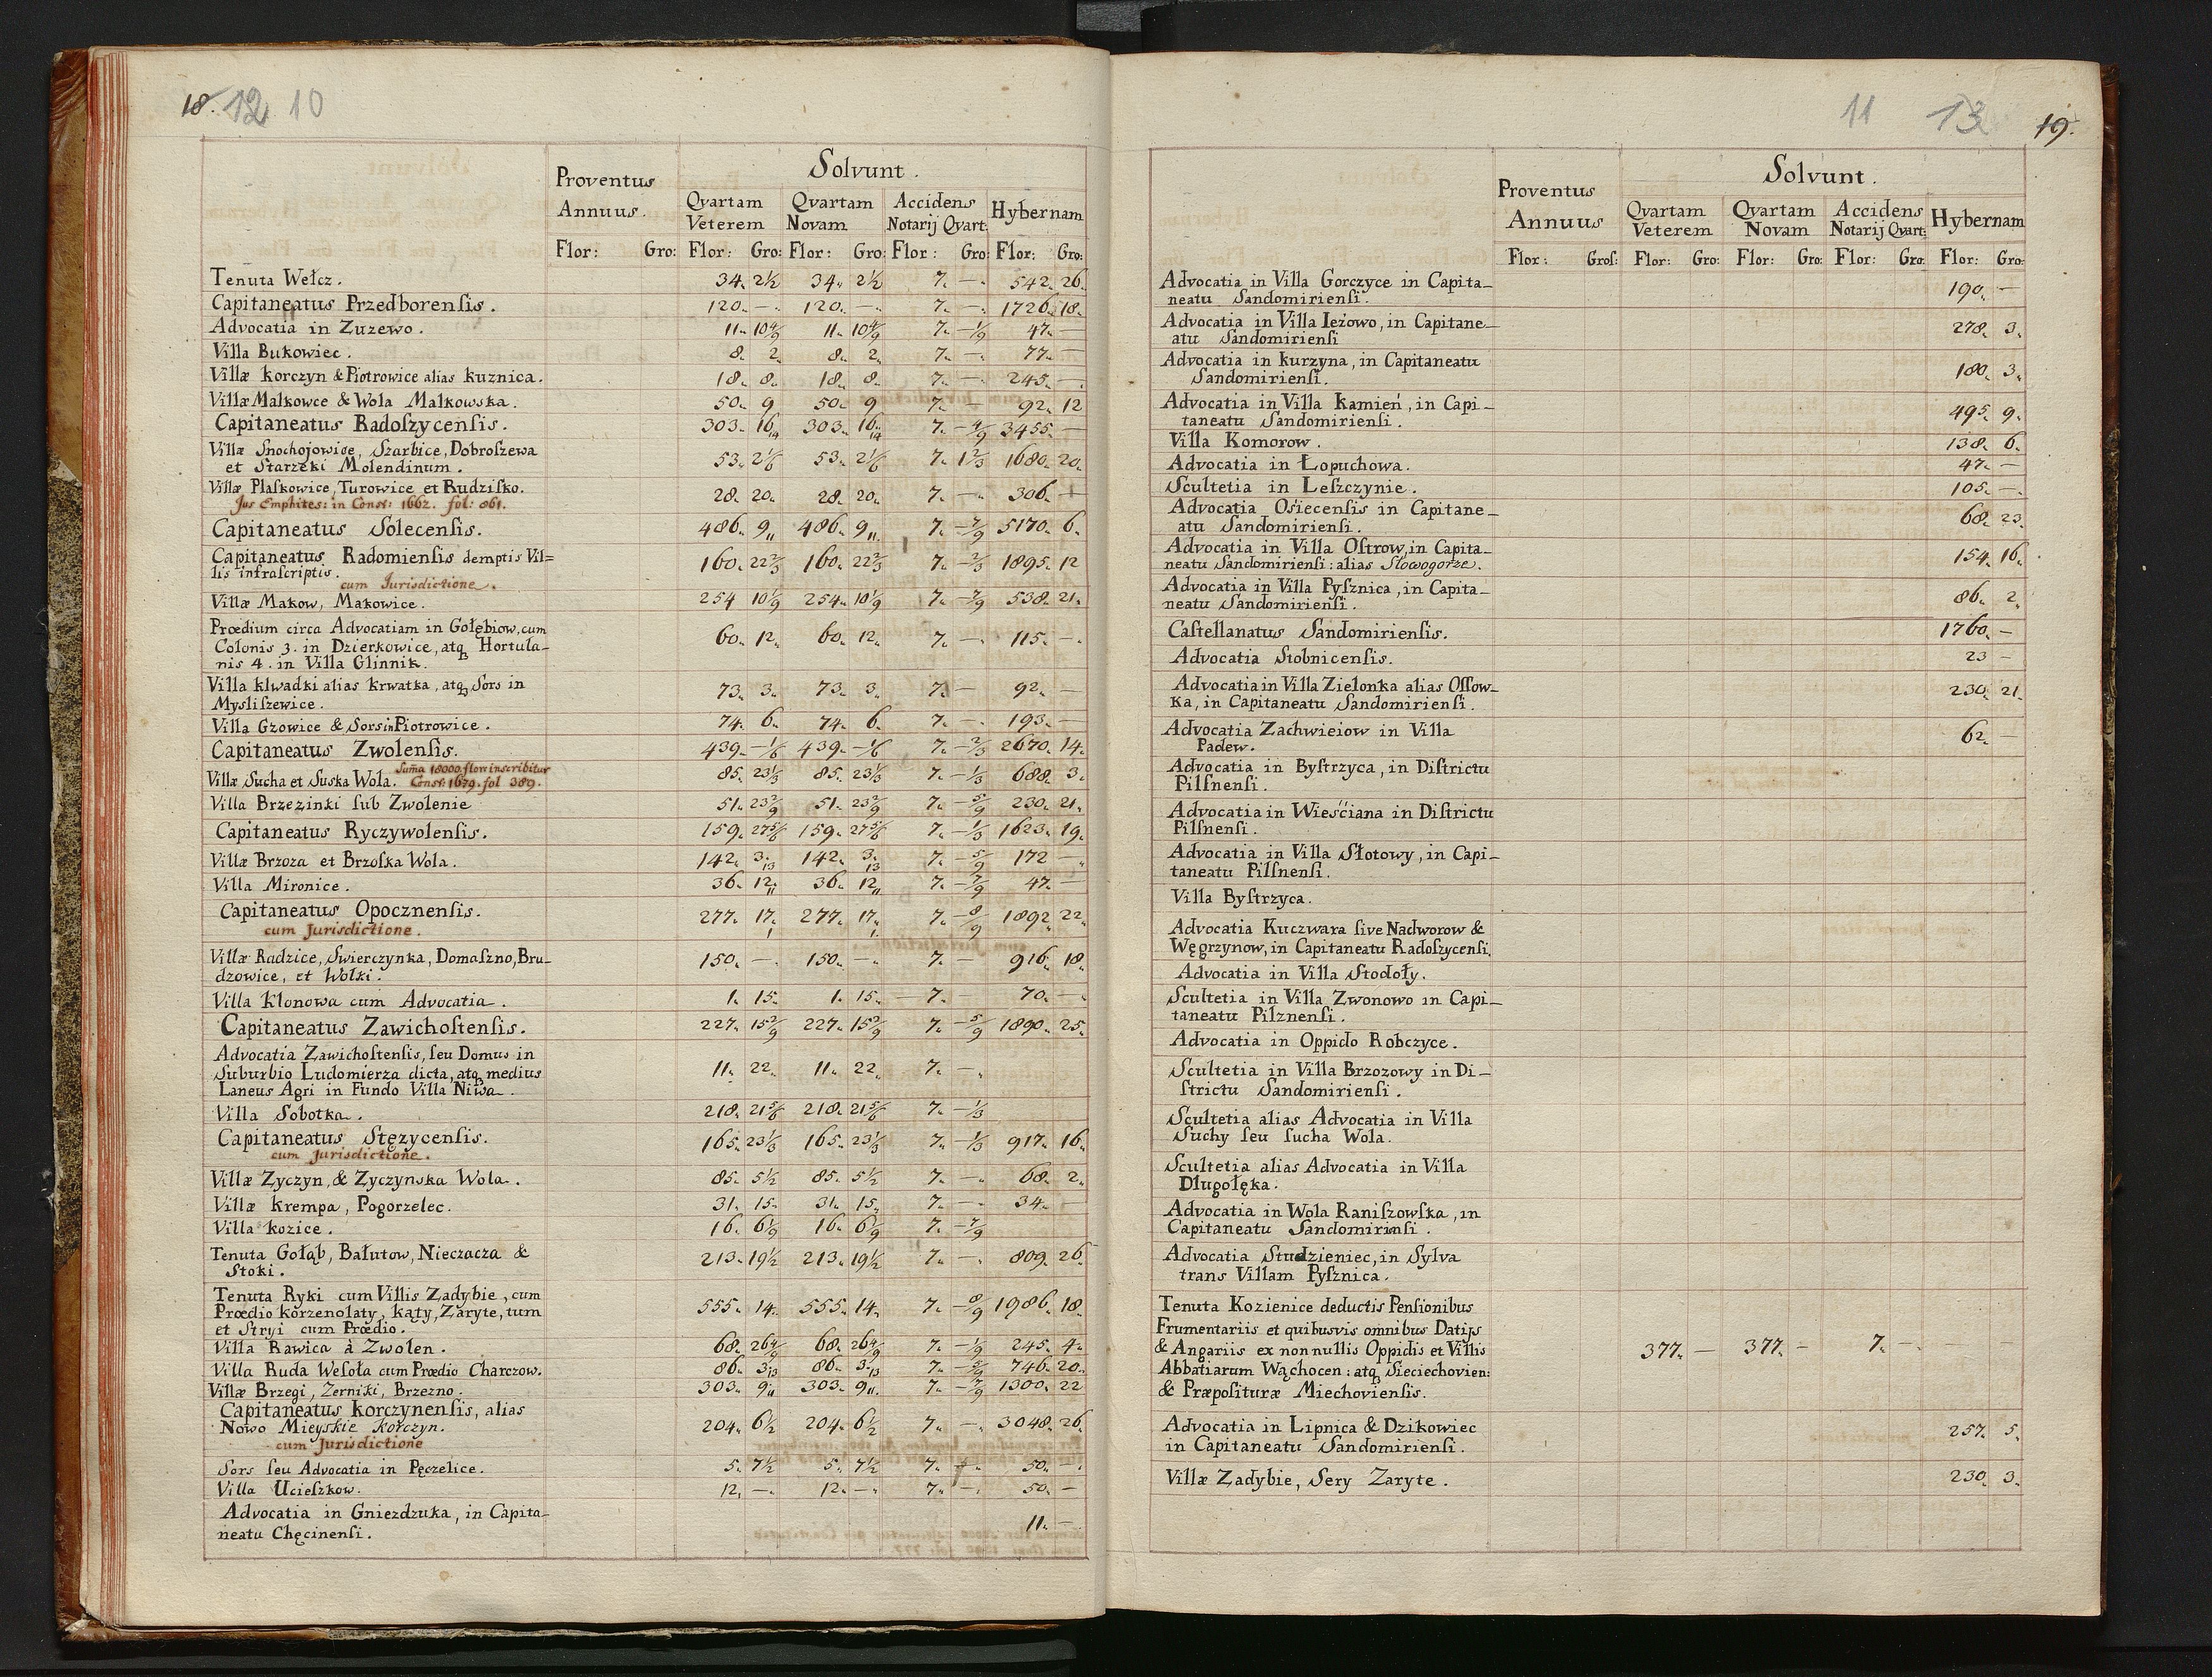 18. 12 10
Solvunt.
Proventus Annuus.
Qvartam Veterem
Qvartam Novam
Accidens Notarij Qvart:
Hybernam
Flor: Gro: Flor: Gro: Flor: Gro: Flor: Gro: Flor: Gro:
Tenuta Wełcz. 34. 2½ 34. 2½ 7. — 542. 26.
Capitaneatus Przedborenſis. 120. — 120. — 7. — 1726. 18.
Advocatia in Zuzewo. 11. 10 4/9 11. 10 4/9 7. — 1/9 47. —
Villa Bukowiec. 8. 2. 8. 2. 7. — 77. —
Villæ Korczyn & Piotrowice alias kuznica. 18. 8. 18. 8. 7. — 245. —
Villæ Malkowce & Wola Malkowska. 50. 9 50. 9 7. — 92. 12
Capitaneatus Radoſzycenſis. 303. 16. 303. 16. 7. — 4/9 3455. —
Villæ Snochojowice, Szarbice, Dobroſzewa
et Starzeki Molendinum. 53. 2 1/6 53. 2 1/6 7. 1 2/3 1680. 20.
Villæ Plaſkowice, Turowice et Rudziſko. 28. 20. 28. 20. 7. — 306. —
Jus Emphites: in Const: 1662. fol: 861.
Capitaneatus Solecenſis. 486. 9. 486. 9. 7. — 7/9 5170. 6.
Capitaneatus Radomienſis demptis Vil=
lis infraſcriptis. 160. 22 2/3 160. 22 2/3 7. — 2/3 1895. 12
cum Jurisdictione.
Villæ Makow, Makowice. 254 10 1/9 254. 10 1/9 7. — 7/9 538. 21.
Prœdium circa Advocatiam in Gołębiow, cum
Colonis 3. in Dzierkowice, atq Hortula-
nis 4. in Villa Glinnik. 60. 12. 60. 12. 7. — 115. —
Villa klwadki alias krwatka, atq Sors in
Mysliſzewice. 73. 3. 73. 3. 7. — 92. —
Villa Gzowice & Sors in Piotrowice. 74. 6. 74. 6. 7. — 193. —
Capitaneatus Zwolenſis. 439. — 1/6 439. — 1/6 7. — 2/3 2670. 14.
Suma 18000 flor inscribitur
Villæ Sucha et Suska Wola. Const: 1679. fol 389. 85. 23 1/3 85. 23 1/3 7. — 1/3 688. 3.
Villa Brzezinki ſub Zwolenie 51. 23 2/9 51. 23 2/9 7. — 5/9 230. 21.
Capitaneatus Ryczywolenſis. 159. 27 5/6 159. 27 5/6 7. — 1/3 1623. 19.
Villæ Brzoza et Brzoſka Wola. 142. 3. 13 142. 3. 13 7. — 5/9 172 —
Villa Mironice. 36. 12. 36. 12. 7. — 7/9 47. —
Capitaneatus Opocznenſis. 277. 17. 277. 17. 7. — 8/9 1892 22.
cum Jurisdictione.
Villæ Radzice, Swierczynka, Domaſzno, Bru-
dzowice, et Wolki. 150. — 150. — 7. — 916. 18.
Villa Klonowa cum Advocatia. 1. 15. 1. 15. 7. — 70. —
Capitaneatus Zawichoſtenſis. 227. 15 2/9 227. 15 2/9 7. — 5/9 1890. 25.
Advocatia Zawichoſtenſis, ſeu Domus in
Suburbio Ludomierza dicta, atq medius
Laneus Agri in Fundo Villa Niwa. 11. 22. 11. 22. 7. —
Villa Sobotka. 218. 21 5/6 218. 21 5/6 7. — 1/3
Capitaneatus Stęzycenſis. 165. 23 1/3 165. 23 1/3 7. — 1/3 917. 16.
cum Jurisdictione.
Villæ Zyczyn, & Zyczynska Wola. 85. 5½ 85. 5½ 7. — 68. 2.
Villæ Krempa, Pogorzelec. 31. 15. 31. 15. 7. — 34. —
Villa kozice. 16. 6 1/9 16. 6 1/9 7. — 7/9
Tenuta Gołąb, Bałutow, Nieczacza &
Stoki. 213. 19½ 213. 19½ 7. — 809. 26.
Tenuta Ryki cum Villis Zadybie, cum
Prœdio korzenolaty, kąty, Zaryte, tum
et Stryi cum Prœdio. 555. 14. 555. 14. 7. — 8/9 1986. 18.
Villa Rawica à Zwolen. 68. 26 4/9 68. 26 4/9 7. — 1/9 245. 4.
Villa Ruda Weſoła cum Prœdio Charczow. 86. 3 13 86. 3 13 7. — 2/9 746. 20.
Villæ Brzegi, Zerniki, Brzezno. 303. 9. 303. 9. 7. — 7/9 1300. 22
Capitaneatus korczynenſis, alias
Nowo Mieyskie Korczyn. 204. 6½ 204. 6½ 7. — 3048. 26.
cum Jurisdictione
Sors ſeu Advocatia in Pęczelice. 5. 7½ 5. 7½ 7. — 50. —
Villa Ucieſzkow. 12. — 12. — 7. — 50. —
Advocatia in Gniezdzuka, in Capita-
neatu Chęcinenſi. 11. —
11 13 19.
Solvunt.
Proventus Annuus
Qvartam Veterem
Qvartam Novam
Accidens Notarij Qvart:
Hybernam
Flor: Groſ: Flor: Gro: Flor: Gro: Flor: Gro: Flor: Gro:
Advocatia in Villa Gorczyce in Capita-
neatu Sandomirienſi. 190. —
Advocatia in Villa Ieżowo, in Capitane-
atu Sandomirienſi 278. 3.
Advocatia in kurzyna, in Capitaneatu
Sandomirienſi. 180. 3.
Advocatia in Villa Kamień, in Capi-
taneatu Sandomirienſi. 495. 9.
Villa Komorow. 138. 6.
Advocatia in Łopuchowa. 47. —
Scultetia in Leſzczynie. 105. —
Advocatia Osiecenſis in Capitane-
atu Sandomirienſi. 68. 23.
Advocatia in Villa Oſtrow, in Capita-
neatu Sandomirienſi: alias Słowogorze. 154. 16.
Advocatia in Villa Pyſznica, in Capita-
neatu Sandomirienſi. 86. 2.
Caſtellanatus Sandomirienſis. 1760. —
Advocatia Stobnicenſis. 23 —
Advocatia in Villa Zielonka alias Oſſow-
ka, in Capitaneatu Sandomirienſi. 230. 21.
Advocatia Zachwieiow in Villa
Padew. 62. —
Advocatia in Byſtrzyca, in Diſtrictu
Pilſnenſi.
Advocatia in Wieśćiana in Diſtrictu
Pilſnenſi.
Advocatia in Villa Słotowy, in Capi-
taneatu Pilſnenſi.
Villa Byſtrzyca.
Advocatia Kuczwara ſive Nadworow &
Węgrzynow, in Capitaneatu Radoſzycenſi.
Advocatia in Villa Stodoły.
Scultetia in Villa Zwonowo in Capi-
taneatu Pilznenſi.
Advocatia in Oppido Robczyce.
Scultetia in Villa Brzozowy in Di-
ſtrictu Sandomirienſi.
Scultetia alias Advocatia in Villa
Suchy ſeu ſucha Wola.
Scultetia alias Advocatia in Villa
Długołęka.
Advocatia in Wola Raniſzowſka, in
Capitaneatu Sandomirienſi.
Advocatia Studzieniec, in Sylva
trans Villam Pyſznica.
Tenuta Kozienice deductis Penſionibus
Frumentariis et quibusvis omnibus Datijs
& Angariis ex non nullis Oppidis et Villis 377. — 377. — 7. — —
Abbatiarum Wąchocen: atq Sieciechovien:
& Præpoſituræ Miechovienſis.
Advocatia in Lipnica & Dzikowiec
in Capitaneatu Sandomirienſi. 257. 5.
Villæ Zadybie, Sery Zaryte. 230. 3.